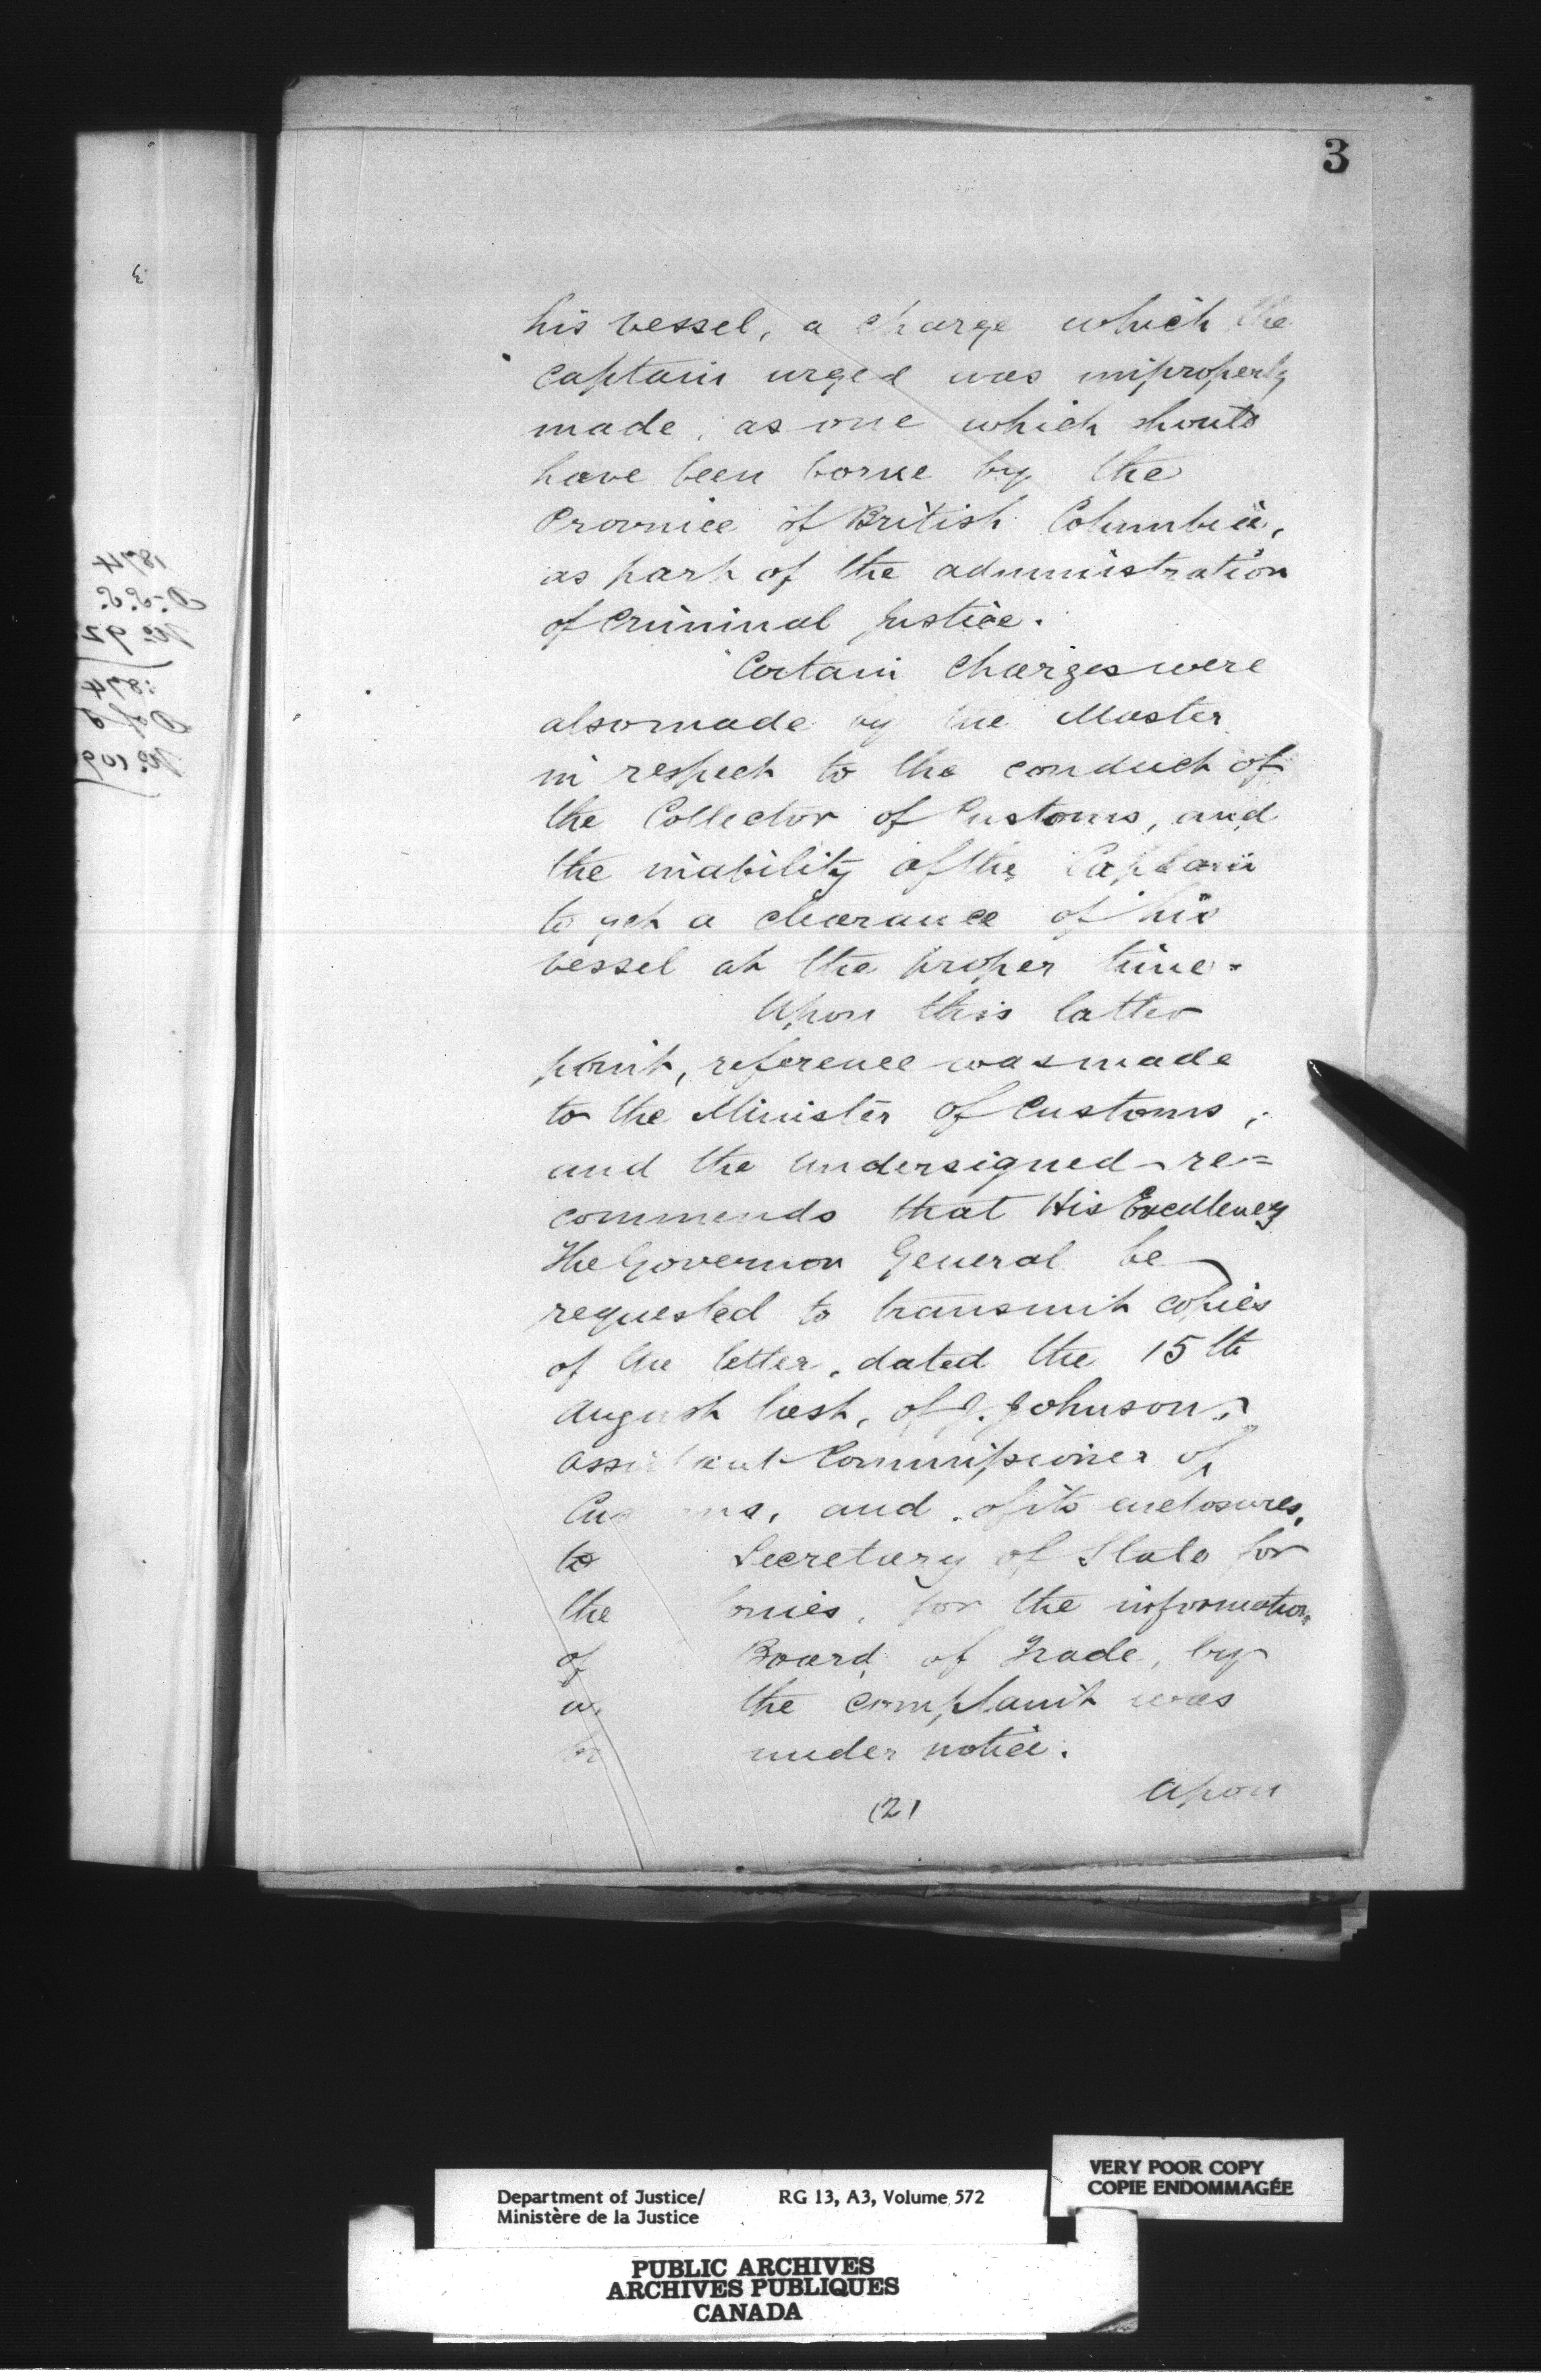 3
his vessel, a charge which the
Captain urged was improperly
made, as one which should
have been borne by the
Province of British Columbia,
as part of the administration
of Criminal Justice.
Certain Charges were
also made by the Master
in respect to the conduct of
the Collector of Customs, and
the inability of the Captain
to get a clearance of his
vessel at the proper time.
Upon this latter
point, reference was made
to the Minister of Customs,
and the undersigned re=
commends that His Excellency
The Governor General be
requested to transmit copies
of the letter, dated the 15th
August last, of J. Johnson,
Assistant Commissioner of
Cus ms, and of its enclosures,
to Secretary of State for
the onies, for the information
of Board of Trade, by
w the complaint was
br under notice.
(2)
Upon
1874
No 92
1874
VERY POOR COPY
COPIE ENDOMMAGÉE
Department of Justice/ RG 13, A3, Volume 572
Ministère de la Justice
PUBLIC ARCHIVES
ARCHIVES PUBLIQUES
CANADA